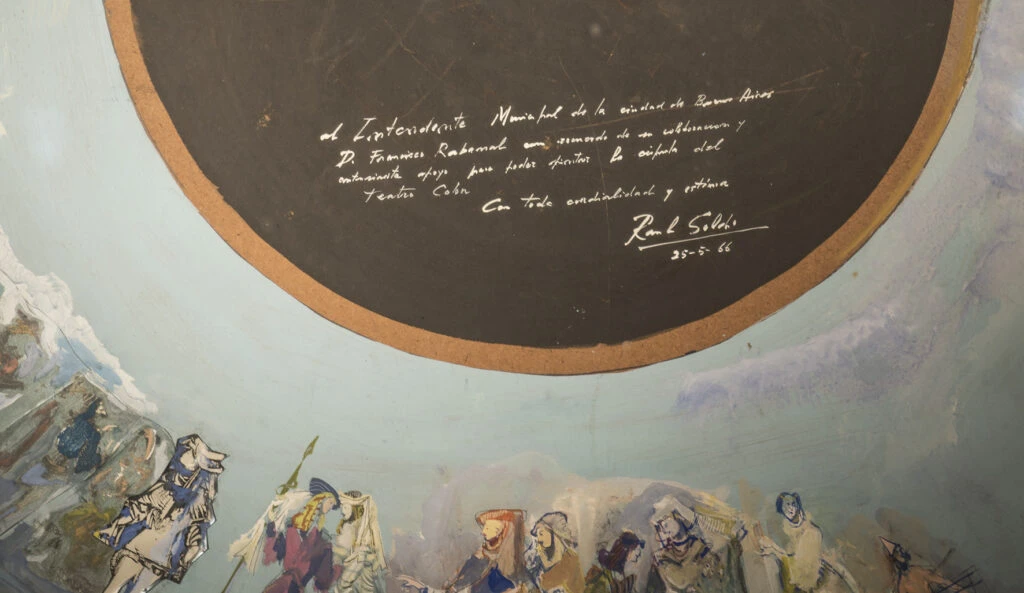 al Intendente Municipal de la ciudad de Buenos Aires
D. Francisco Rabanal en recuerdo de su colaboracion y
entusiasta apoyo para poder pintar la cúpula del
Teatro Colon
Con toda cordialidad y estima
Raul Soldi
25-5-66